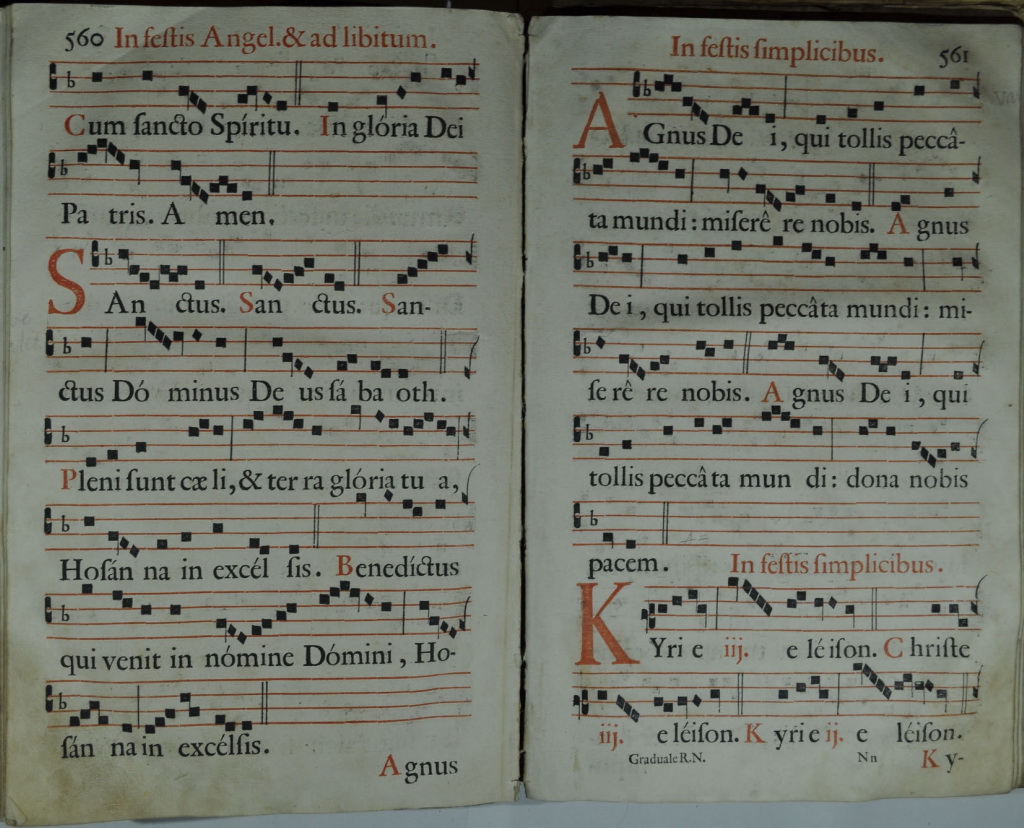 560 In feſtis Angel. & ad libitum.
Cum ſancto Spíritu. In glória Dei
Pa tris. A men.
SAn ctus. San ctus. San-
ctus Dó minus De us ſá ba oth.
Pleni ſunt cæ li, & ter ra glória tu a,
Hoſán na in excél ſis. Benedíctus
qui venit in nómine Dómini, Ho-
ſán na in excélſis.
Agnus
In feſtis ſimplicibus. 561
AGnus De i, qui tollis peccâ-
ta mundi: miſerê re nobis. A gnus
De i, qui tollis peccâta mundi: mi-
ſe rê re nobis. A gnus De i, qui
tollis peccâ ta mun di: dona nobis
pacem. In feſtis ſimplicibus.
KYri e iij. e lé iſon. C hriſte
iij. e léiſon. K yri e ij. e léiſon.
Graduale R.N. Nn Ky-